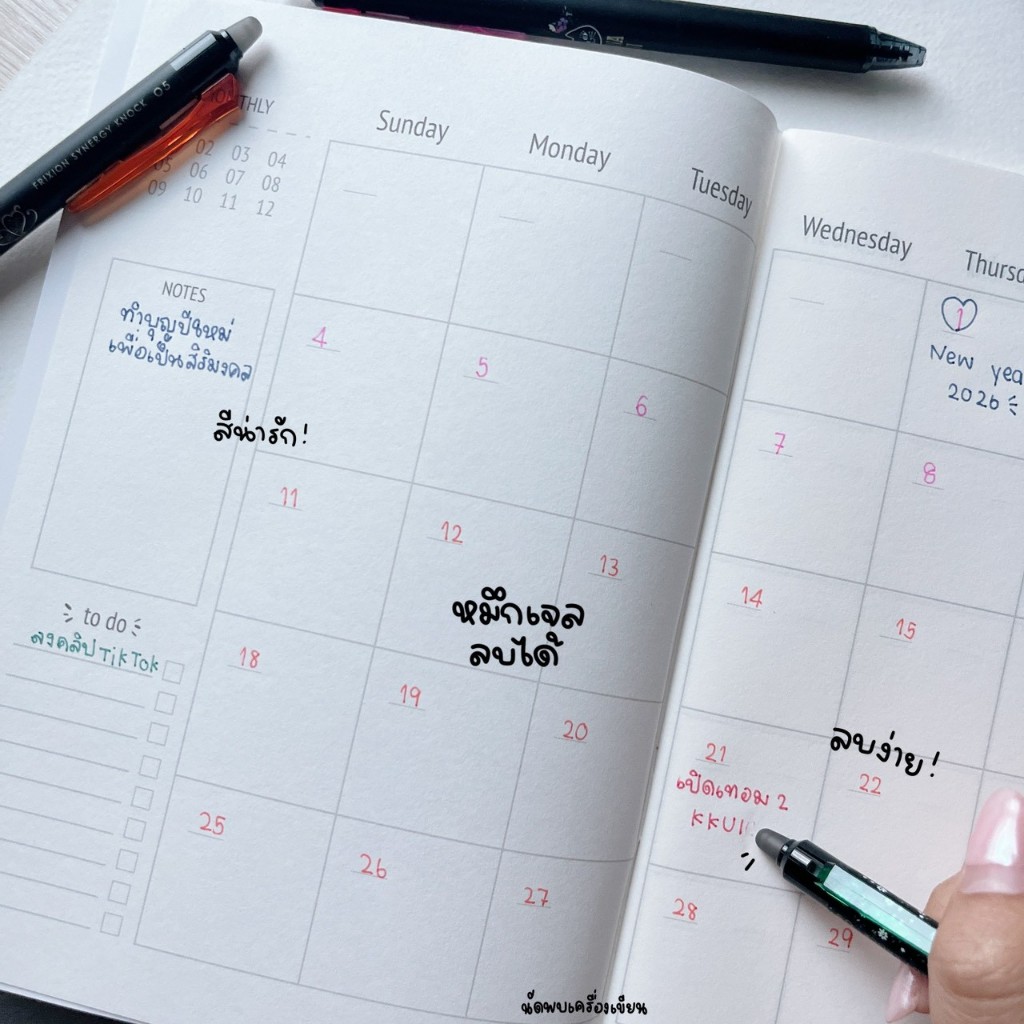 FRIXION SYNERGY KNOCK 05
MONTHLY
02 03 04
05 06 07 08
09 10 11 12
Sunday Monday Tuesday Wednesday Thursd
NOTES
ทำบุญปีใหม่
เพื่อเป็นสิริมงคล
สีน่ารัก!
1
New yea
2026
4 5 6 7 8
11 12 13 14 15
หมึกเจล
ลบได้
to do
ลงคลิป TikTok
18 19 20 21 22
ลบง่าย!
เปิดเทอม 2
KKU
25 26 27 28 29
นัดพบเครื่องเขียน